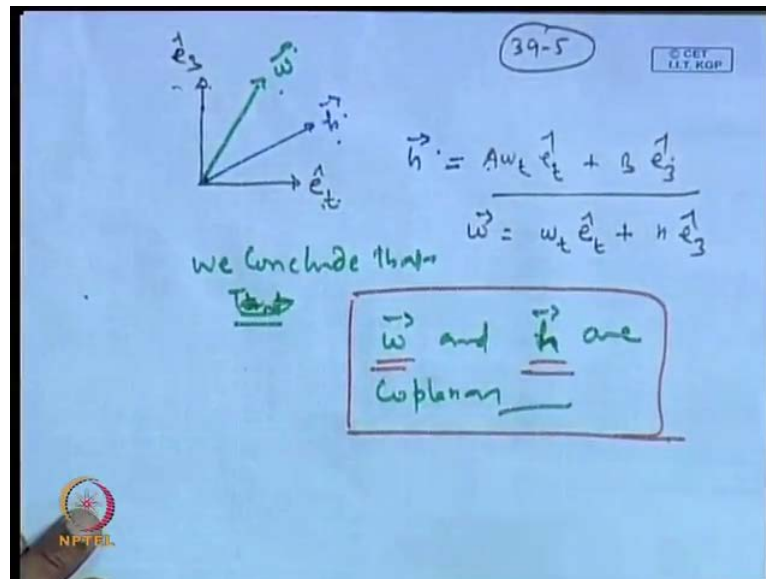 39-5
© CET
I.I.T. KGP
ê₃
w⃗
h⃗
ê_t
h⃗ = Aw_t ê_t + B ê₃
w⃗ = w_t ê_t + n ê₃
we conclude that
w⃗ and h⃗ are
Coplanar
NPTEL